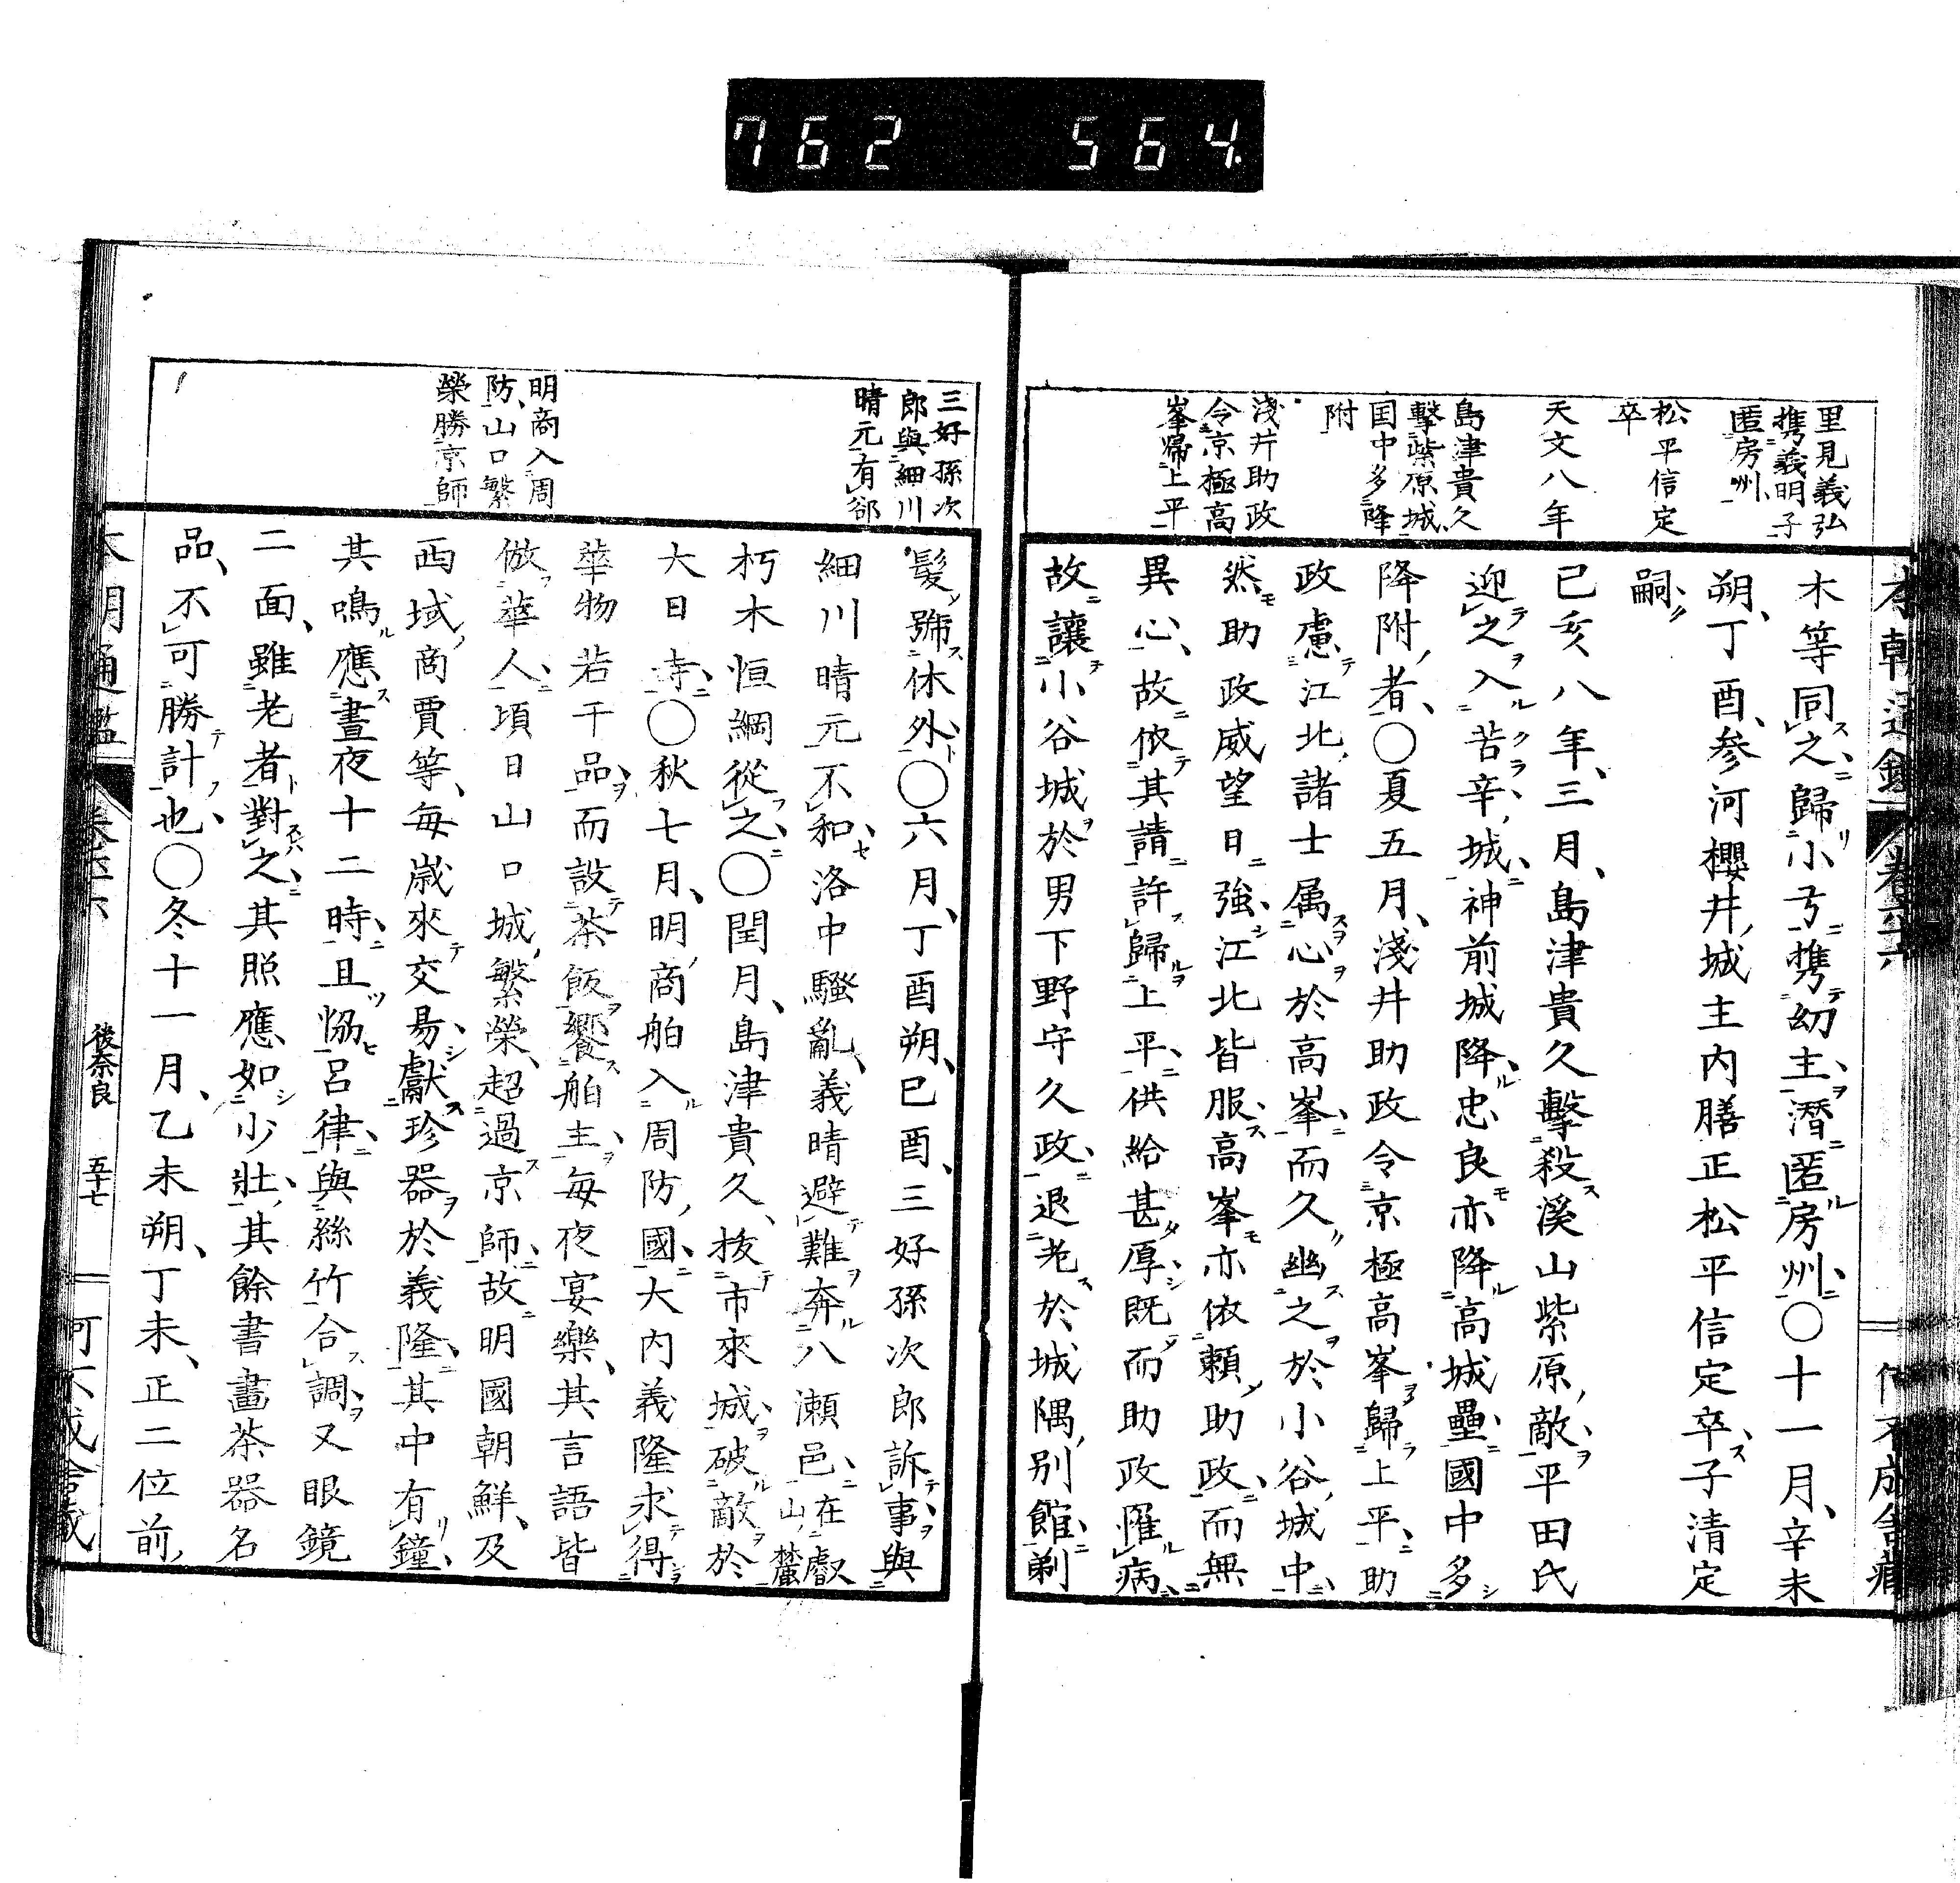 762 564
里見義弘
携義明子
匿房州
松平信定
卒
天文八年
島津貴久
擊紫原城
国中多降
附
淺井助政
令京極高
峯歸上平
木等同之歸小弓携幼主潛匿房州〇十一月辛未
朔丁酉參河櫻井城主内膳正松平信定卒子清定
嗣
己亥八年三月島津貴久擊殺溪山紫原敵平田氏
迎之入苦辛城神前城降忠良亦降高城壘國中多
降附者〇夏五月淺井助政令京極高峯歸上平助
政慮江北諸士属心於高峯而久幽之於小谷城中
然助政威望日強江北皆服高峯亦依賴助政而無
異心故依其請許歸上平供給甚厚既而助政罹病
故讓小谷城於男下野守久政退老於城隅別館剃
三好孫次
郎與細川
晴元有郤
明商入周
防山口繁
榮勝京師
髮號休外〇六月丁酉朔已酉三好孫次郎訴事與
細川晴元不和洛中騷亂義晴避難奔八瀬邑在叡山麓
朽木恒綱從之〇閏月島津貴久拔市來城破敵於
大日寺〇秋七月明商舶入周防國大内義隆求得
華物若干品而設茶飯饗舶主每夜宴樂其言語皆
倣華人頃日山口城繁榮超過京師故明國朝鮮及
西域商賈等每歲來交易獻珍器於義隆其中有鐘
其鳴應晝夜十二時且恊呂律與絲竹合調又眼鏡
二面雖老者對之其照應如少壯其餘書畫茶器名
品不可勝計也〇冬十一月乙未朔丁未正二位前
後奈良
五十七